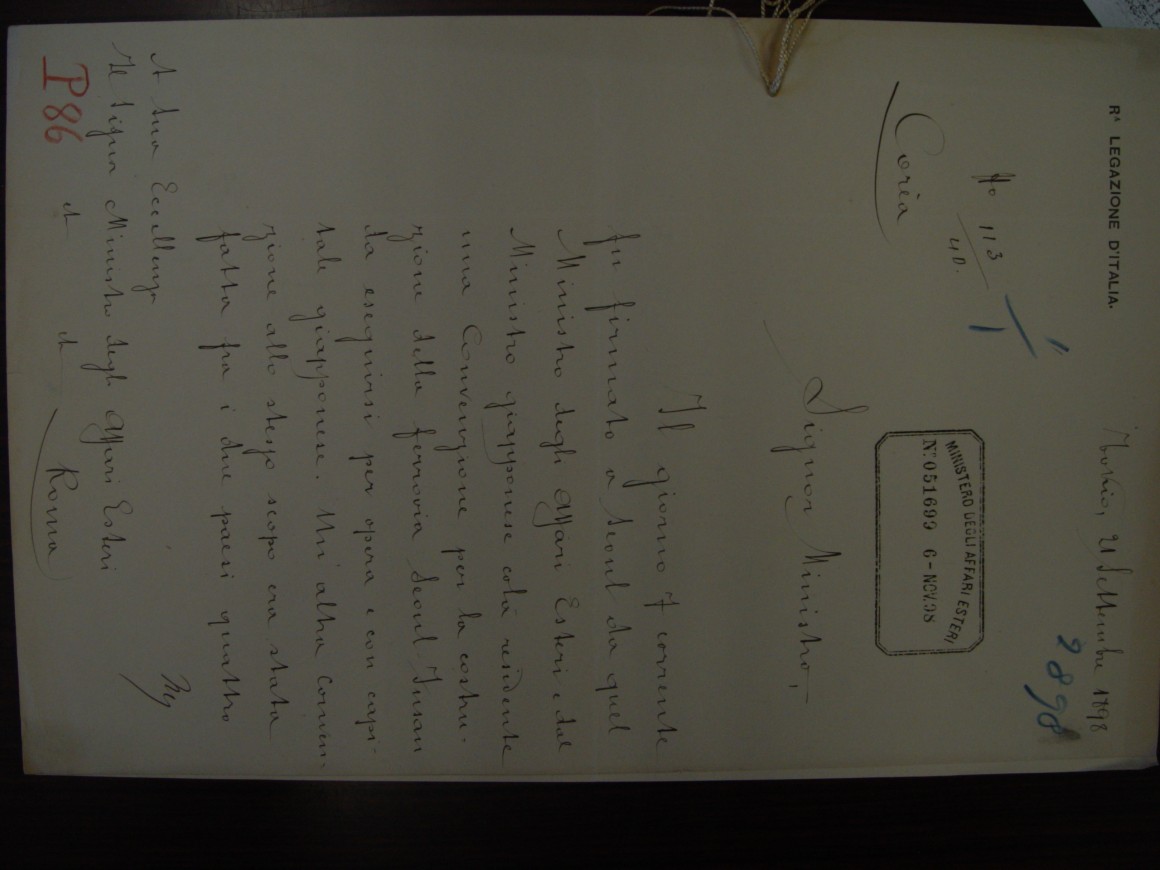 Rᴬ LEGAZIONE D'ITALIA.
Tokio, 21 Settembre 1898
2898
No 113
40.
1
Corea
MINISTERO DEGLI AFFARI ESTERI
Nº 051699 6-NOV.98
Signor Ministro,
Il giorno 7 corrente
fu firmato a Seoul da quel
Ministro degli Affari Esteri e dal
Ministro giapponese colà residente
una Convenzione per la costru-
zione della ferrovia Seoul Fusan
da eseguirsi per opera e con capi-
tale giapponese. Un' altra conven-
zione allo stesso scopo era stata
fatta fra i due paesi quattro
A Sua Eccellenza
Il Signor Ministro degli Affari Esteri
et et Roma
P86